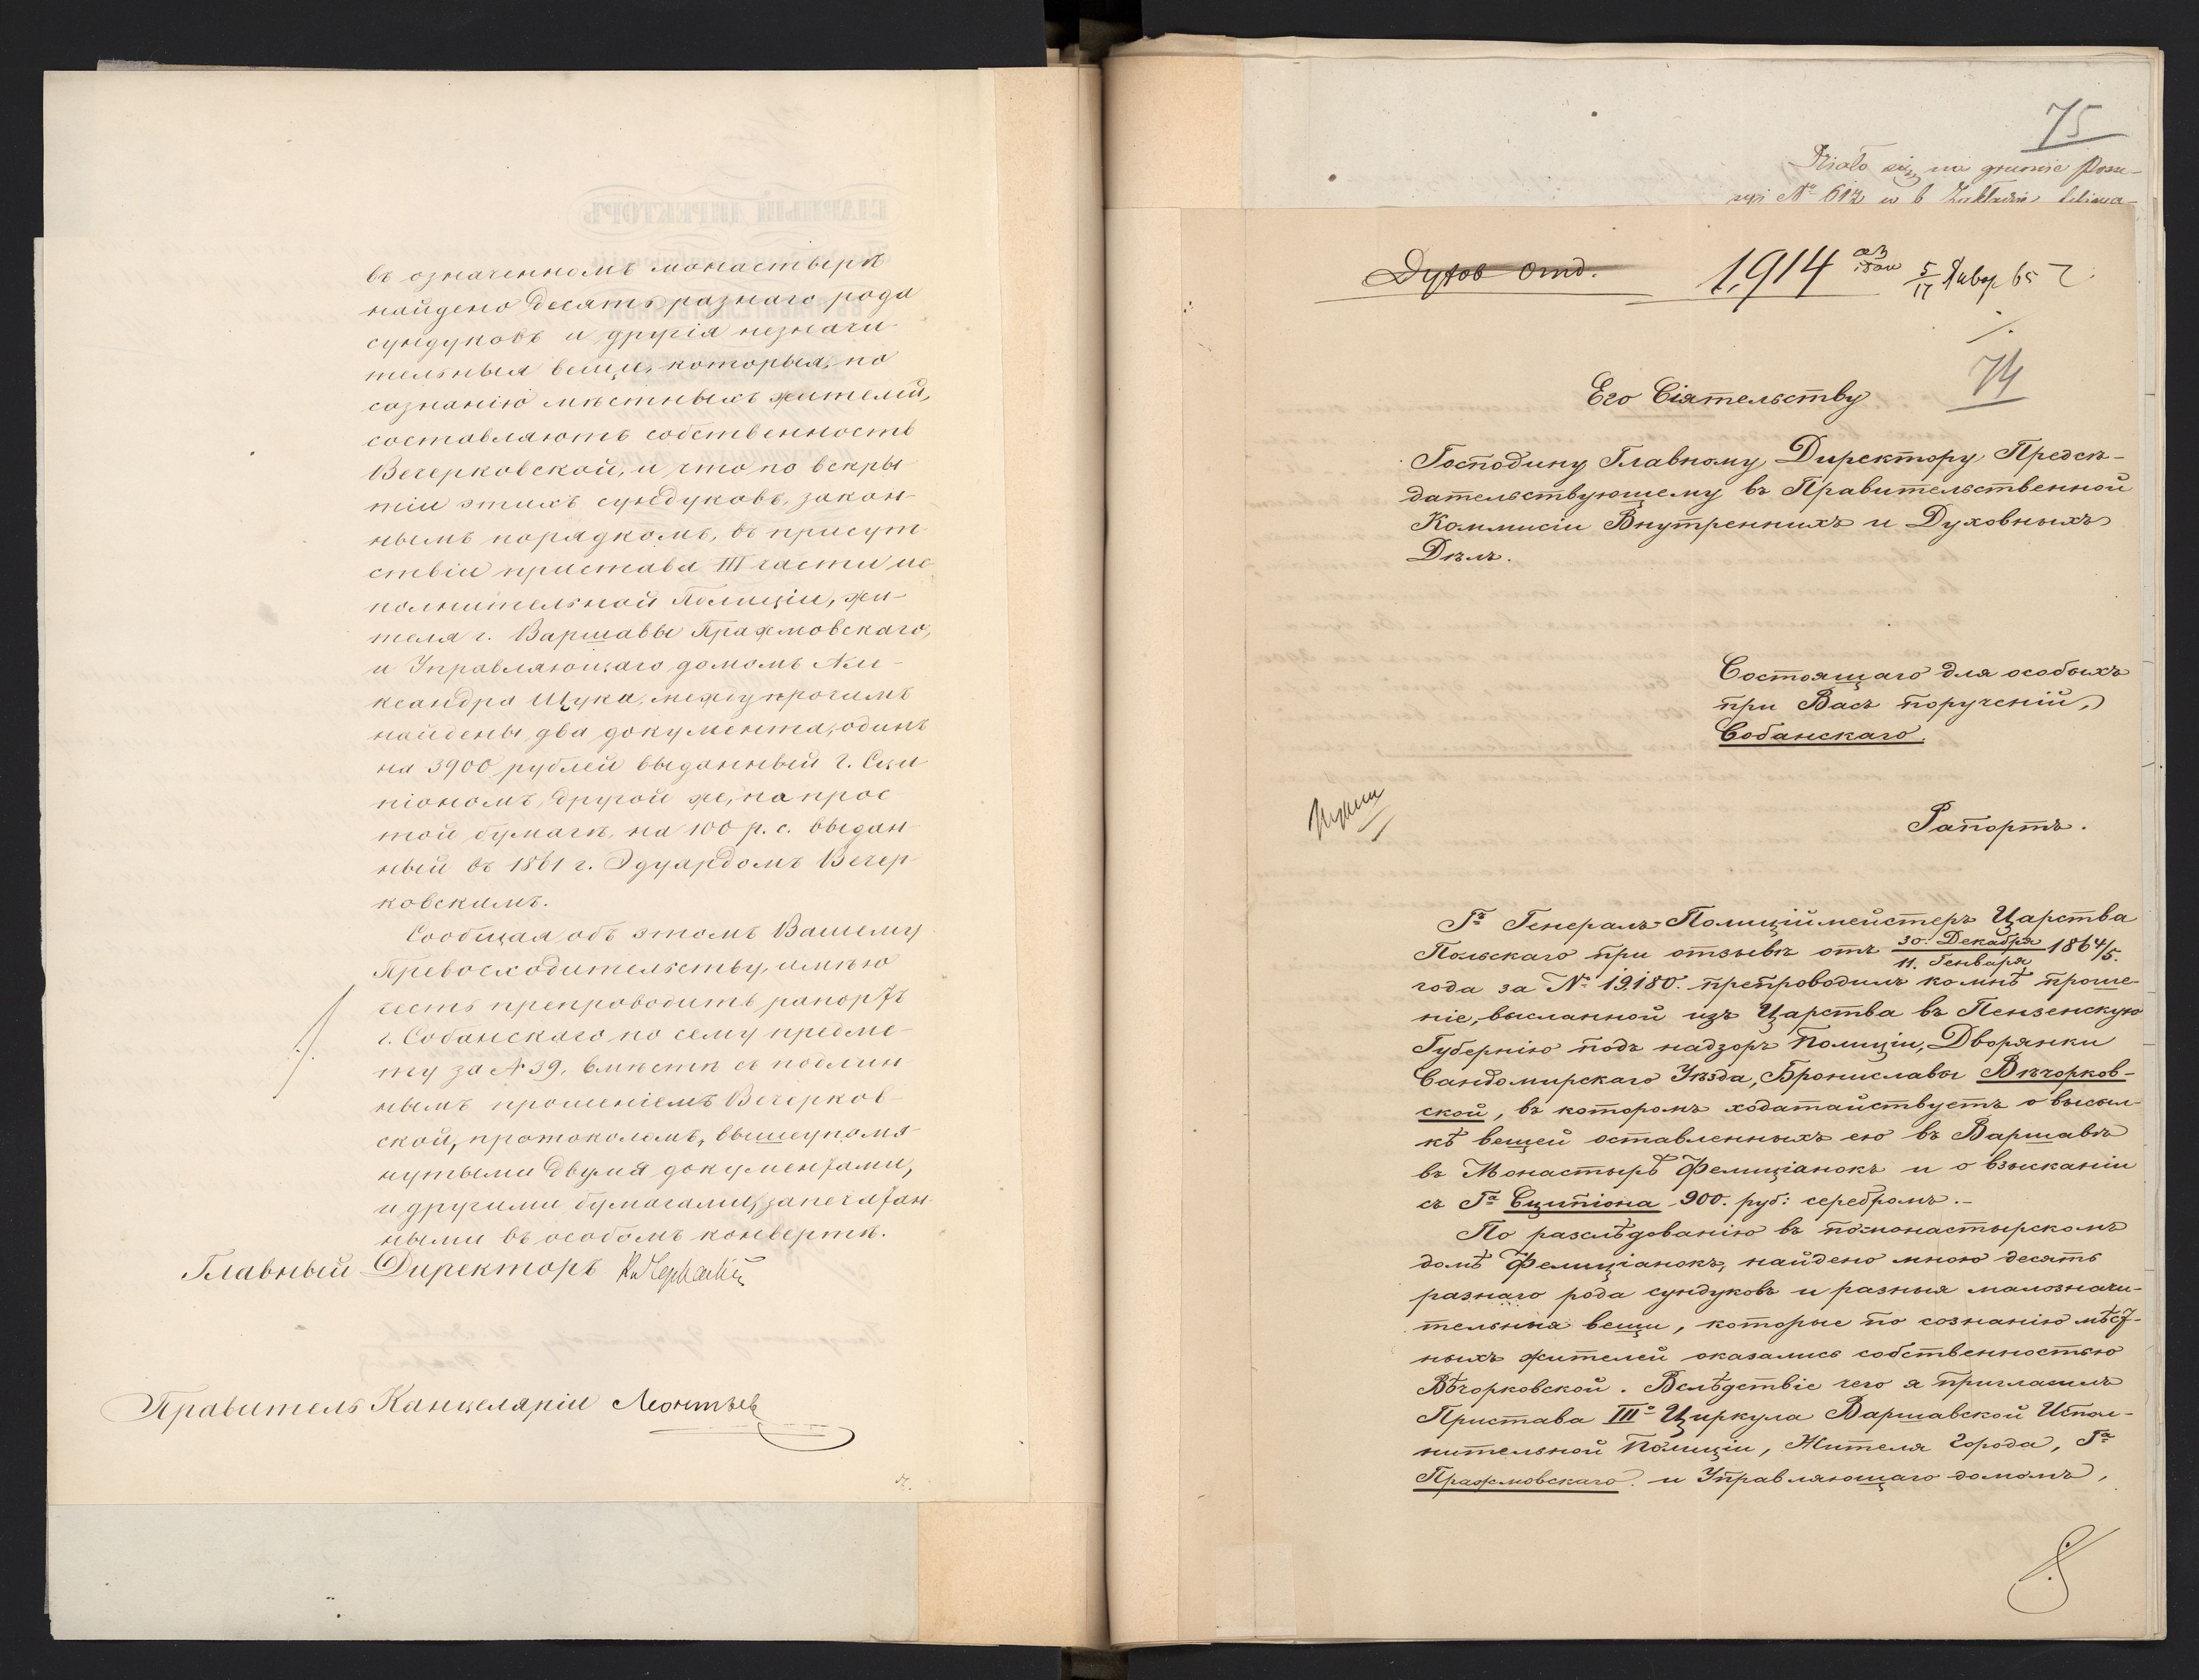 въ означенномъ монастырѣ
найдено десять разнаго рода
сундуковъ и другія незначи-
тельныя вещи, которыя, по
сознанію мѣстныхъ жителей,
составляютъ собственность
Вечерковской, и что по вскры
тіи этихъ сундуковъ, закон-
нымъ порядкомъ, въ присут
ствіи пристава III части ис
полнительной Полиціи, жи-
теля г. Варшавы Пражмовскаго,
и Управляющаго домомъ Але-
ксандра Щука, между прочимъ
найдены два документа, одинъ
на 3900 рублей выданный г. Сци
піономъ, другой же, на прос
той бумагѣ, на 100 р. с. выдан
ный въ 1861 г. Эдуардомъ Вечер
ковскимъ.
Сообщая объ этомъ Вашему
Превосходительству, имѣю
честь препроводить рапортъ
г. Собанскаго по сему предме-
ту за № 39, вмѣстѣ съ подлин
нымъ прошеніемъ Вечерков-
ской, протоколомъ, вышеупомя-
нутыми двумя документами,
и другими бумагами, запечатан-
ными въ особомъ конвертѣ.
Главный Директоръ
Правитель Канцеляріи Леонтьевъ
75
się na gruncie
№ 612 w b Zakładzie
Духов Отд.
1,914 5/17 Янвр 65 г.
74
Его Сіятельству
Господину Главному Директору, Предсѣ-
дательствующему въ Правительственной
Коммисіи Внутреннихъ и Духовныхъ
Дѣлъ.
Состоящаго для особыхъ
при Васъ порученій,
Собанскаго.
Рапортъ.
Гъ Генералъ-Полиціймейстеръ Царства
Польскаго при отзывѣ отъ 30. Декабря / 11. Генваря 1864/5.
года за № 19,180. препроводилъ ко мнѣ проше-
ніе, высланной изъ Царства въ Пензенскую
Губернію подъ надзоръ Полиціи, Дворянки
Сандомирскаго Уѣзда, Брониславы Вѣчорков-
ской, въ которомъ ходатайствуетъ о высыл-
кѣ вещей оставленныхъ ею въ Варшавѣ
въ Монастырѣ Фелиціанокъ и о взысканіи
съ Га Сципіона 900. руб: серебромъ.-
По разслѣдованію въ помонастырскомъ
домѣ Фелиціанокъ, найдено мною десять
разнаго рода сундуковъ и разныя малозначи-
тельныя вещи, которые по сознанію мѣст-
ныхъ жителей оказались собственностью
Вѣчорковской. Вслѣдствіе чего я пригласилъ
Пристава IIIо Циркула Варшавской Испол-
нительной Полиціи, Жителя Города, Га
Пражмовскаго и Управляющаго домомъ,